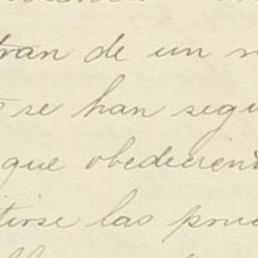 tran de un
se han segu
que obedecien
tirse las prue